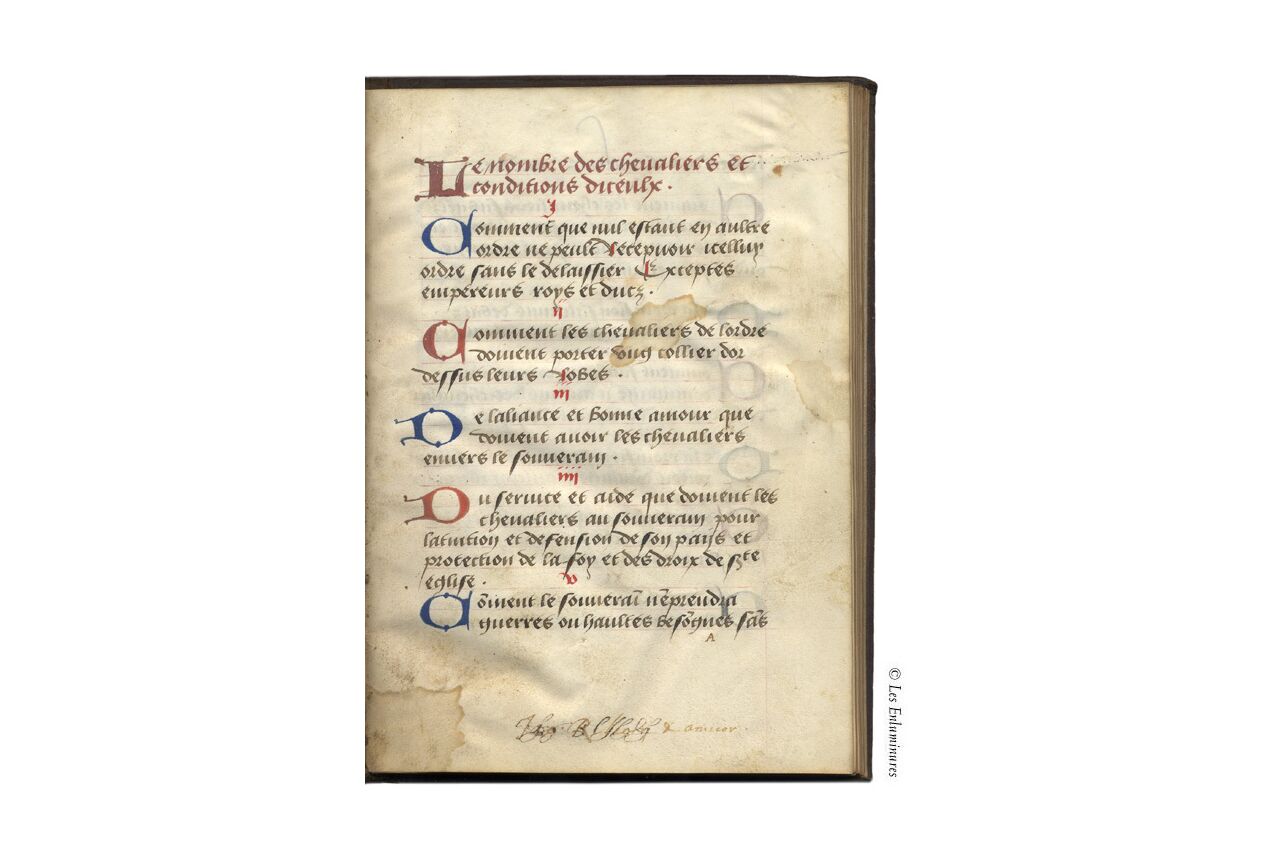 Le nombre des chevaliers et
conditions diceulx .
j
Comment que nul estant en aultre
ordre ne peult recepuoir icelluy
ordre sans le delaissier Exceptes
empereurs roys et ducz .
ij
Comment les chevaliers de lordre
doiuent porter vng collier dor
dessus leurs robes .
iij
De laliance et bonne amour que
doiuent auoir les chevaliers
enuers le souuerain .
iiij
Du seruice et aide que doiuent les
chevaliers au souuerain pour
latuition et defension de son pays et
protection de la foy et des droix de ste
eglise .
v
Cōment le souuerai᷑ nēprendra
guerres ou haultes besōgnes sās
A
& amicor
© Les Enluminures